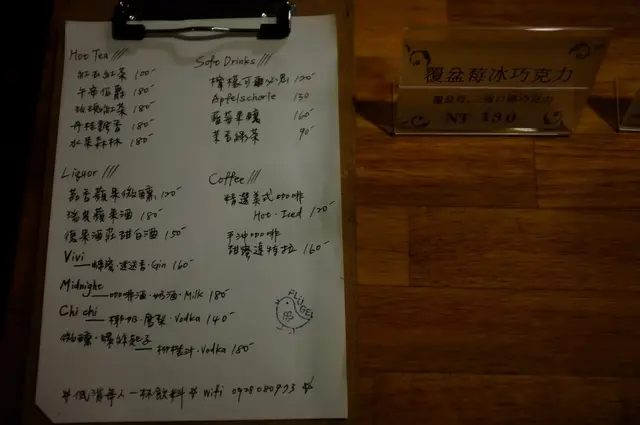 Hot Tea ///
紅衣紅茶 100-
午安伯爵 180-
玫瑰紅茶 180-
丹桂飄香 180-
水果森林 180-
Soft Drinks ///
檸檬可爾必思 120-
Apfelschorle 130
160-
茉香綠茶 90-
Liquor ///
荔香蘋果微醺 120-
瑞良蘋果酒 180-
酒莊甜白酒 150-
Vivi
蜂蜜·迷迭香·Gin 160-
Midnight
咖啡酒·奶酒·Milk 180-
Chi chi 椰奶·鳳梨·Vodka 140-
微醺·螺絲起子
柳橙汁·Vodka 180-
Coffee ///
精選美式咖啡
Hot·Iced 120-
手沖咖啡
160-
FLÜGEL
低消每人一杯飲料 Wifi 0928080993
覆盆莓冰巧克力
NT 190